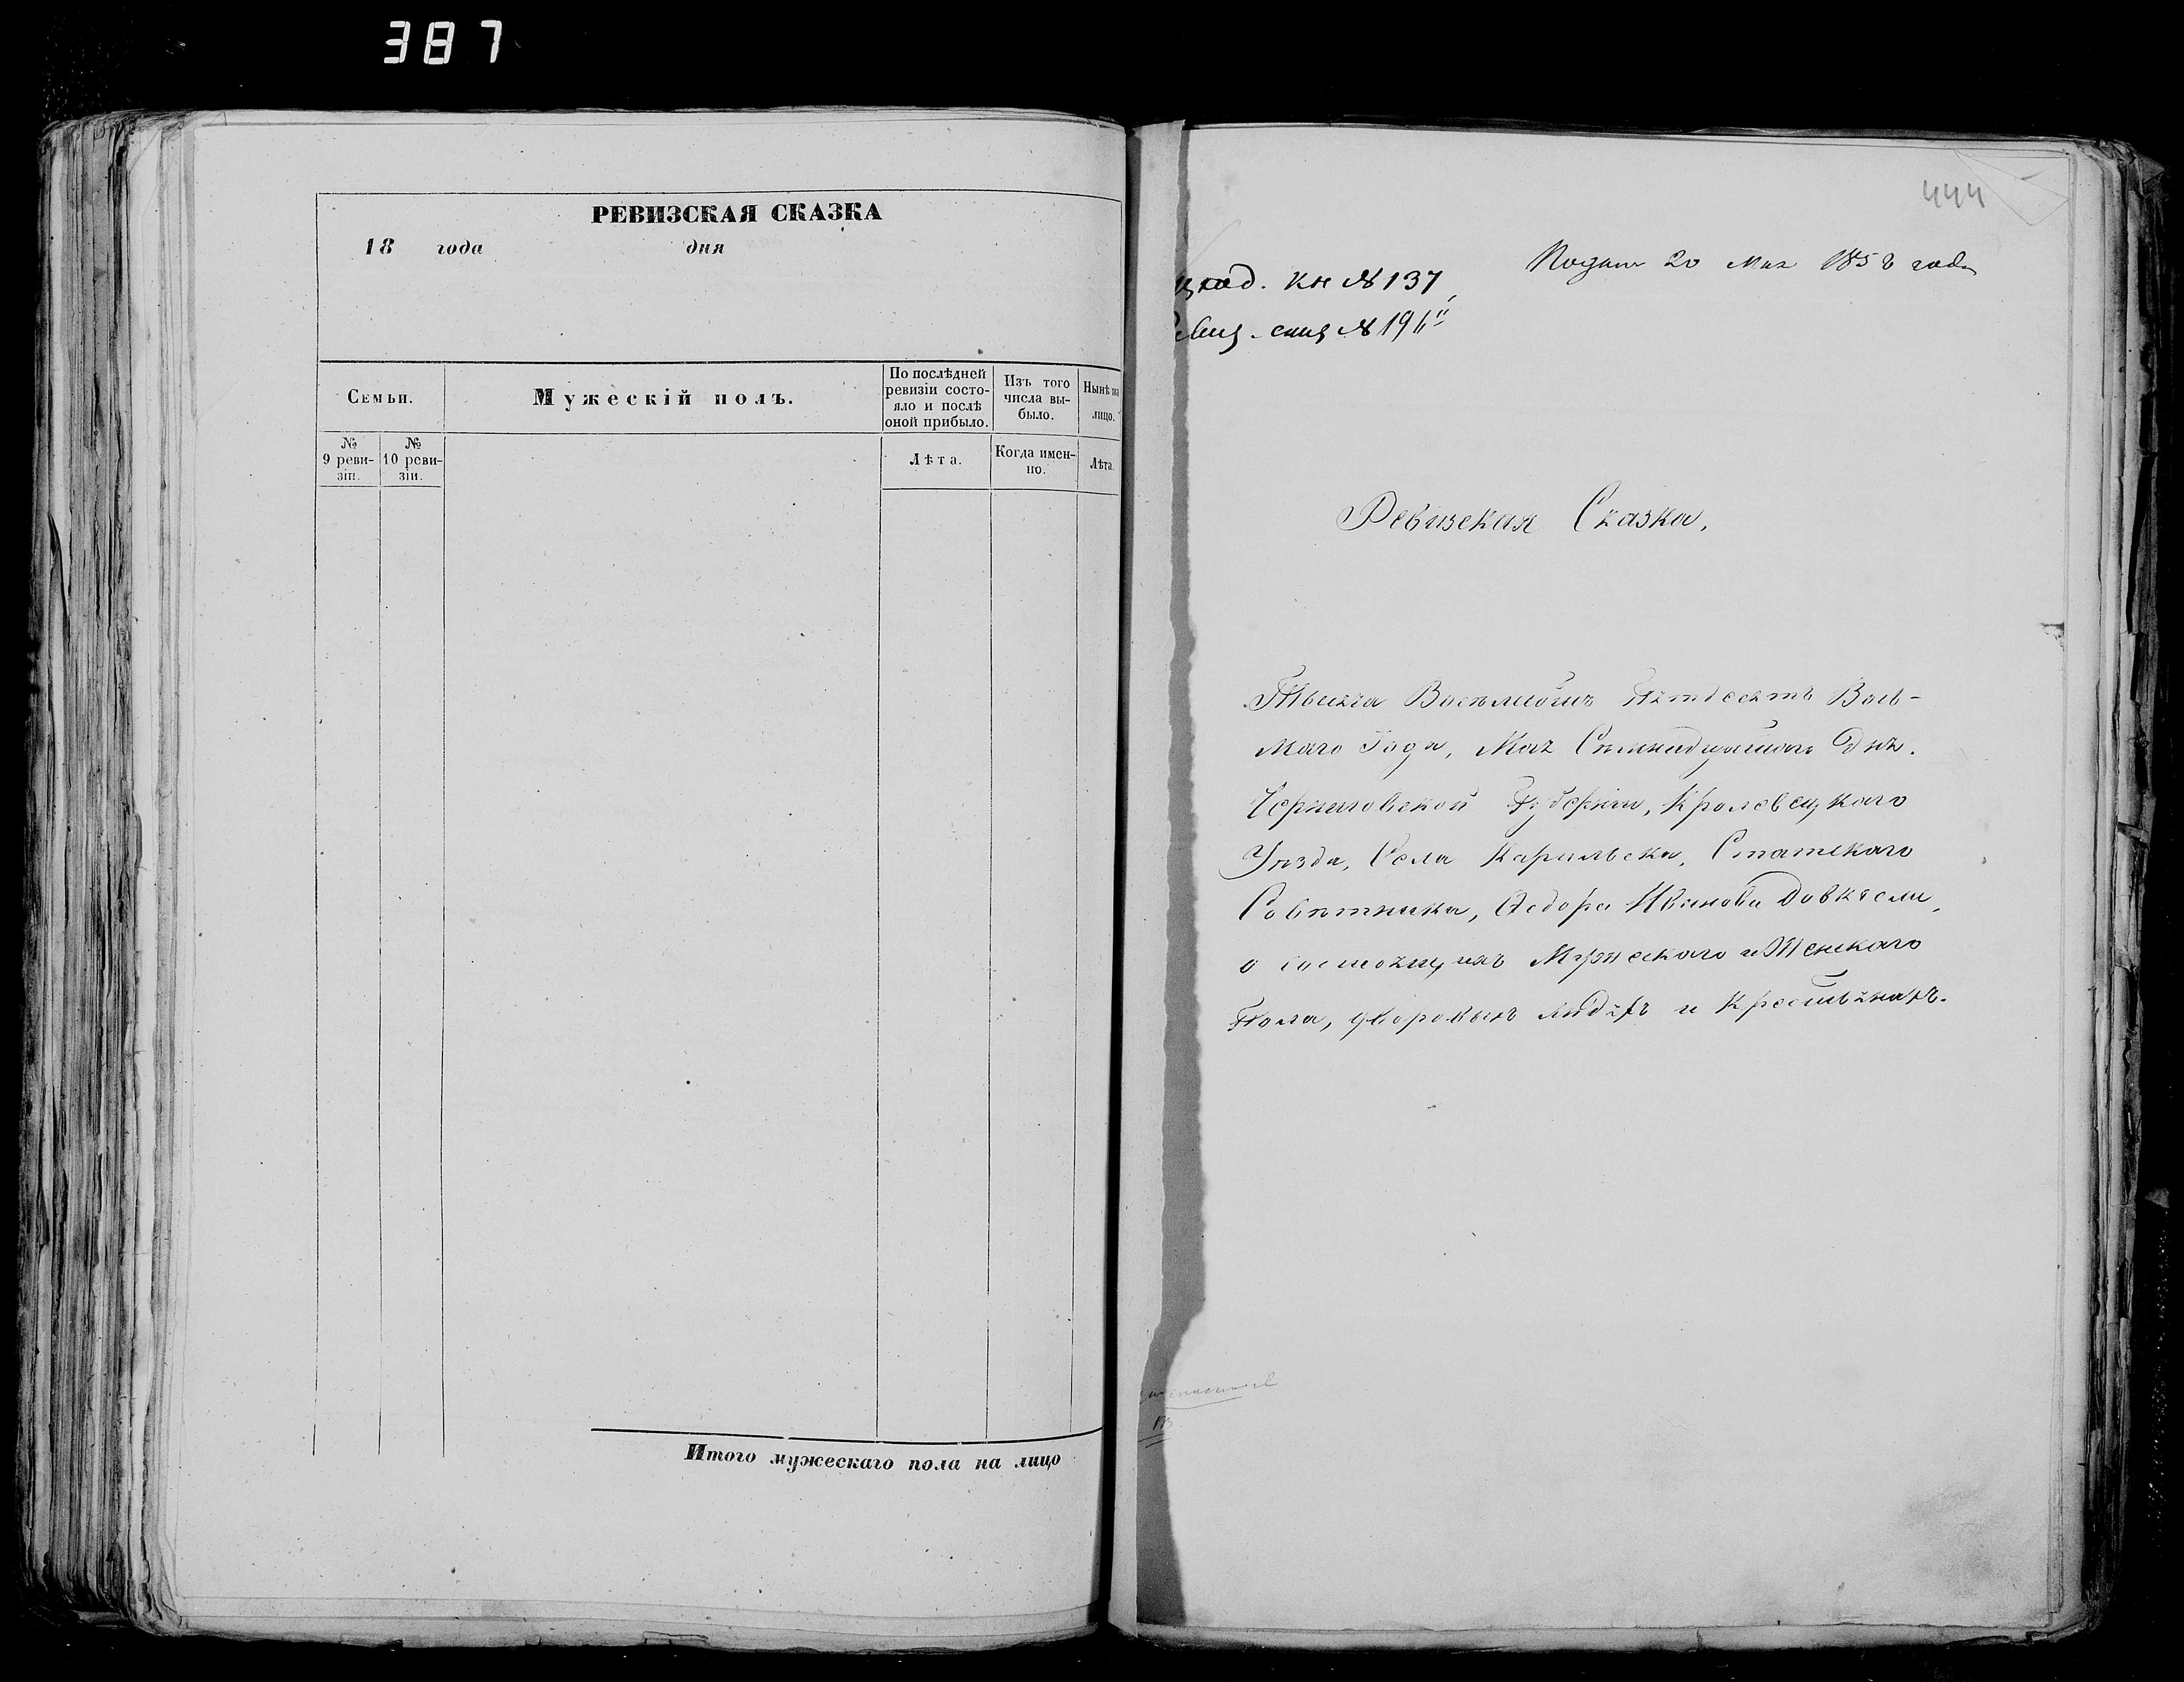 387
РЕВИЗСКАЯ СКАЗКА
18 года дня
Семьи.
Мужескій полъ.
По послѣдней ревизіи состояло и послѣ оной прибыло.
Изъ того числа выбыло.
Нынѣ на лицо.
№ 9 ревизіи.
№ 10 ревизіи.
Лѣта.
Когда именно.
Лѣта.
Итого мужескаго пола на лицо
444
Подана 20 Мая 1858 года
кн № 137
№ 196
Ревизская Сказка,
Тысяча Восемьсотъ Пятдесятъ Вось-
маго Года, Мая Семнадцатаго Дня.
Черниговской Губерніи, Кролевецкаго
Уѣзда, Села Карильска, Статскаго
Совѣтника, Федора Иванова
о состоящихъ Мужескаго и Женскаго
Пола, дворовыхъ людяхъ и Крестьянахъ.